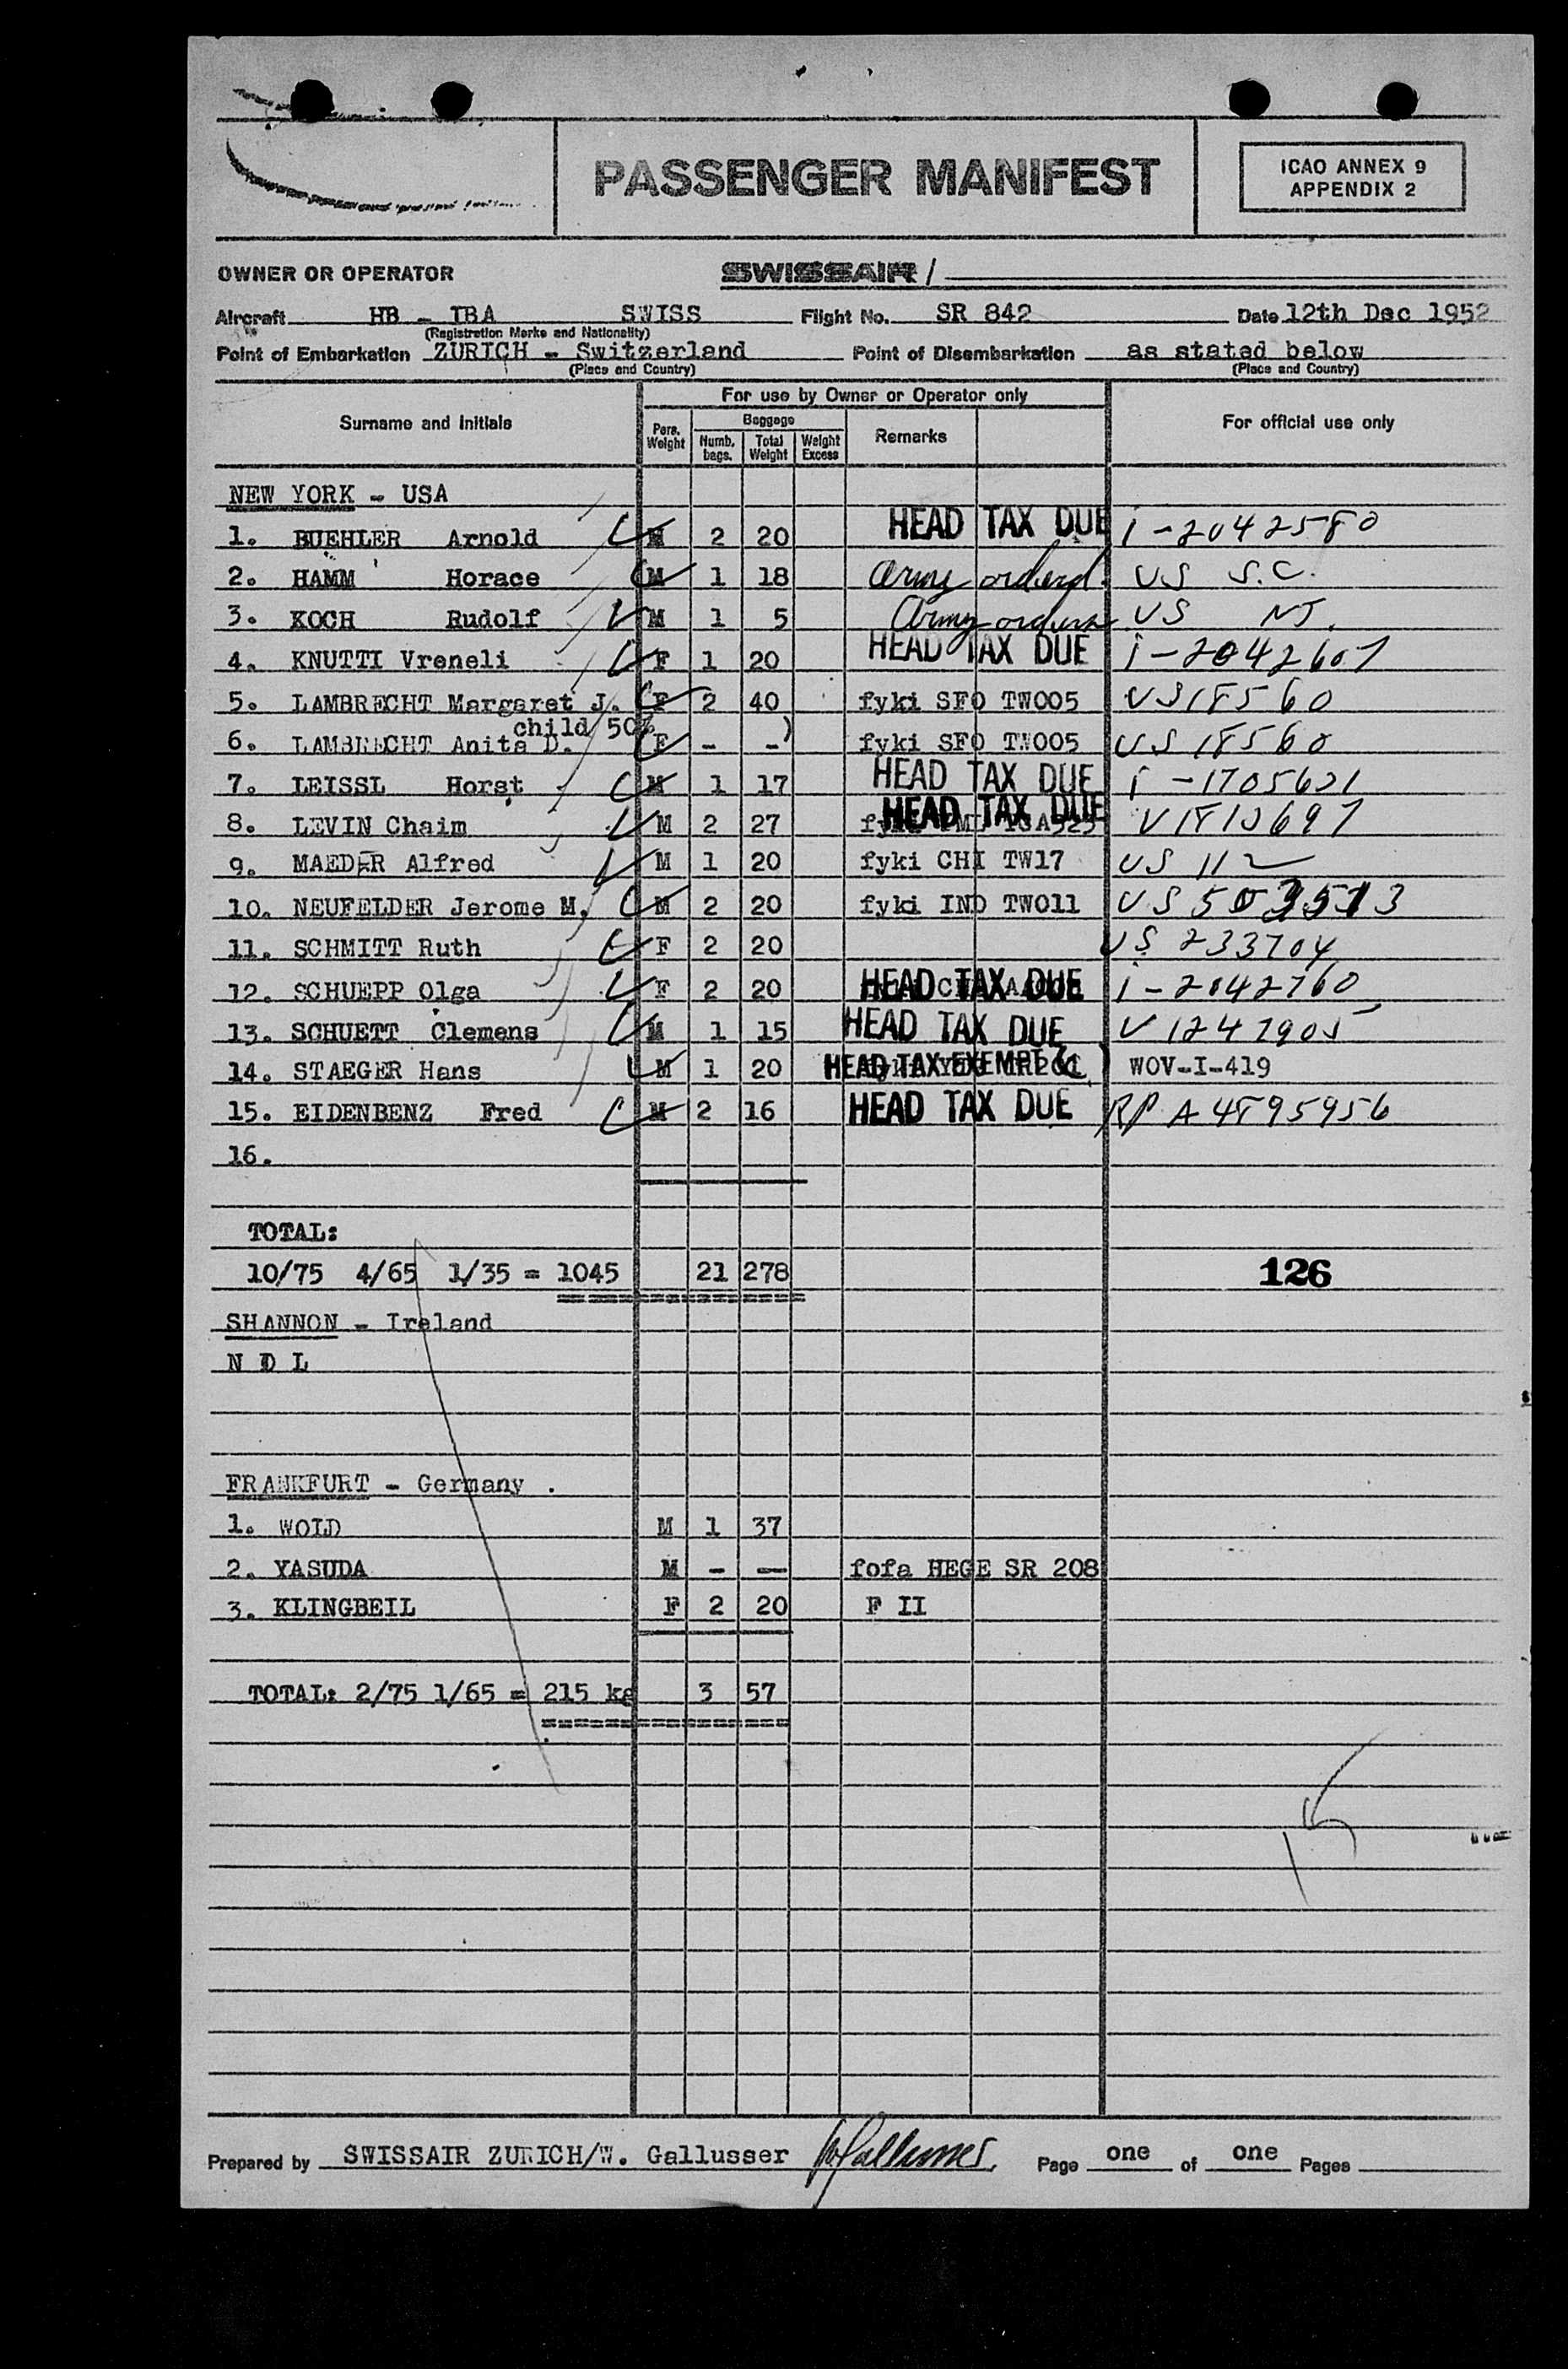 PASSENGER MANIFEST
ICAO ANNEX 9
APPENDIX 2
OWNER OR OPERATOR SWISSAIR /
Aircraft HB - IBA SWISS Flight No. SR 842 Date 12th Dec 1952
(Registration Marks and Nationality)
Point of Embarkation ZURICH - Switzerland Point of Disembarkation as stated below
(Place and Country) (Place and Country)
Surname and Initials For use by Owner or Operator only For official use only
Pers. Weight Baggage Remarks
Numb. bags. Total Weight Weight Excess
NEW YORK - USA
1. BUEHLER Arnold M 2 20 HEAD TAX DUE i-2042580
2. HAMM Horace M 1 18 Army orders. US S.C.
3. KOCH Rudolf M 1 5 Army orders US NJ.
4. KNUTTI Vreneli F 1 20 HEAD TAX DUE i-2042607
5. LAMBRECHT Margaret J. F 2 40 fyki SFO TW005 US18560
child 50%
6. LAMBRECHT Anita D. F - -) fyki SFO TW005 US 18560
7. LEISSL Horst M 1 17 HEAD TAX DUE i-1705621
8. LEVIN Chaim M 2 27 HEAD TAX DUE
9. MAEDER Alfred M 1 20 fyki CHI TW17 US 112
10. NEUFELDER Jerome M. M 2 20 fyki IND TW011 US
11. SCHMITT Ruth F 2 20 US 233704
12. SCHUEPP Olga F 2 20 HEAD TAX DUE i-2042760
13. SCHUETT Clemens M 1 15 HEAD TAX DUE V 1247905
14. STAEGER Hans M 1 20 HEAD TAX EXEMPT ( ) WOV-I-419
15. EIDENBENZ Fred M 2 16 HEAD TAX DUE RP A 4895956
16.
TOTAL:
10/75 4/65 1/35 = 1045 21 278 126
SHANNON - Ireland
N D L
FRANKFURT - Germany .
1. WOLD M 1 37
2. YASUDA M - - fofa HEGE SR 208
3. KLINGBEIL F 2 20 F II
TOTAL: 2/75 1/65 = 215 kg 3 57
Prepared by SWISSAIR ZURICH/W. Gallusser WGallusser Page one of one Pages